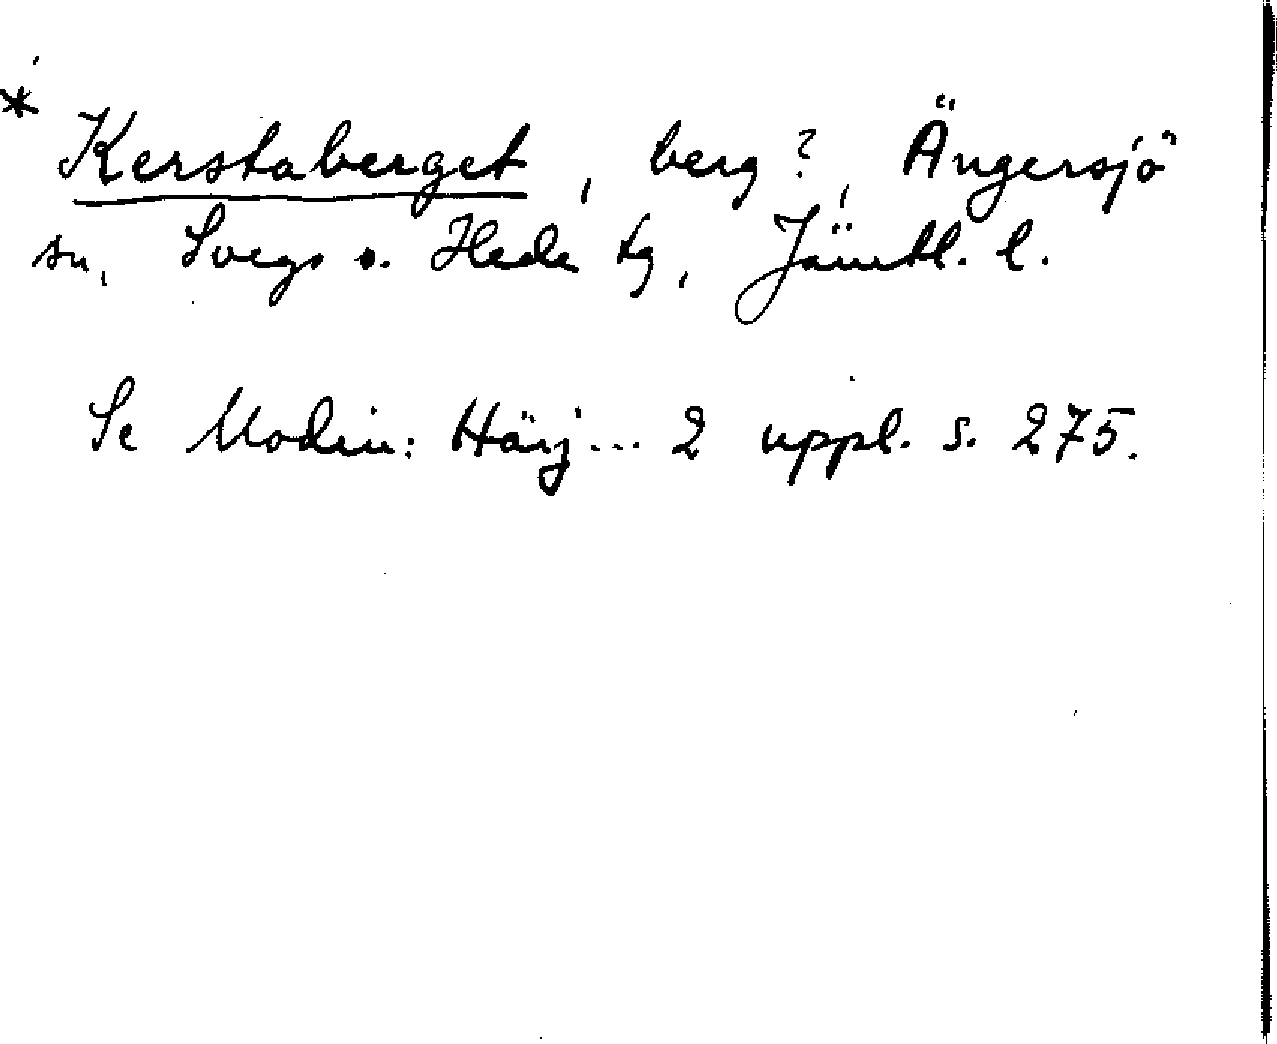 * Kerstaberget, berg?, Ängersjö
sn, Svegs o. Hede tg, Jämtl. l.
Se Modin: Härj... 2 uppl. s. 275.